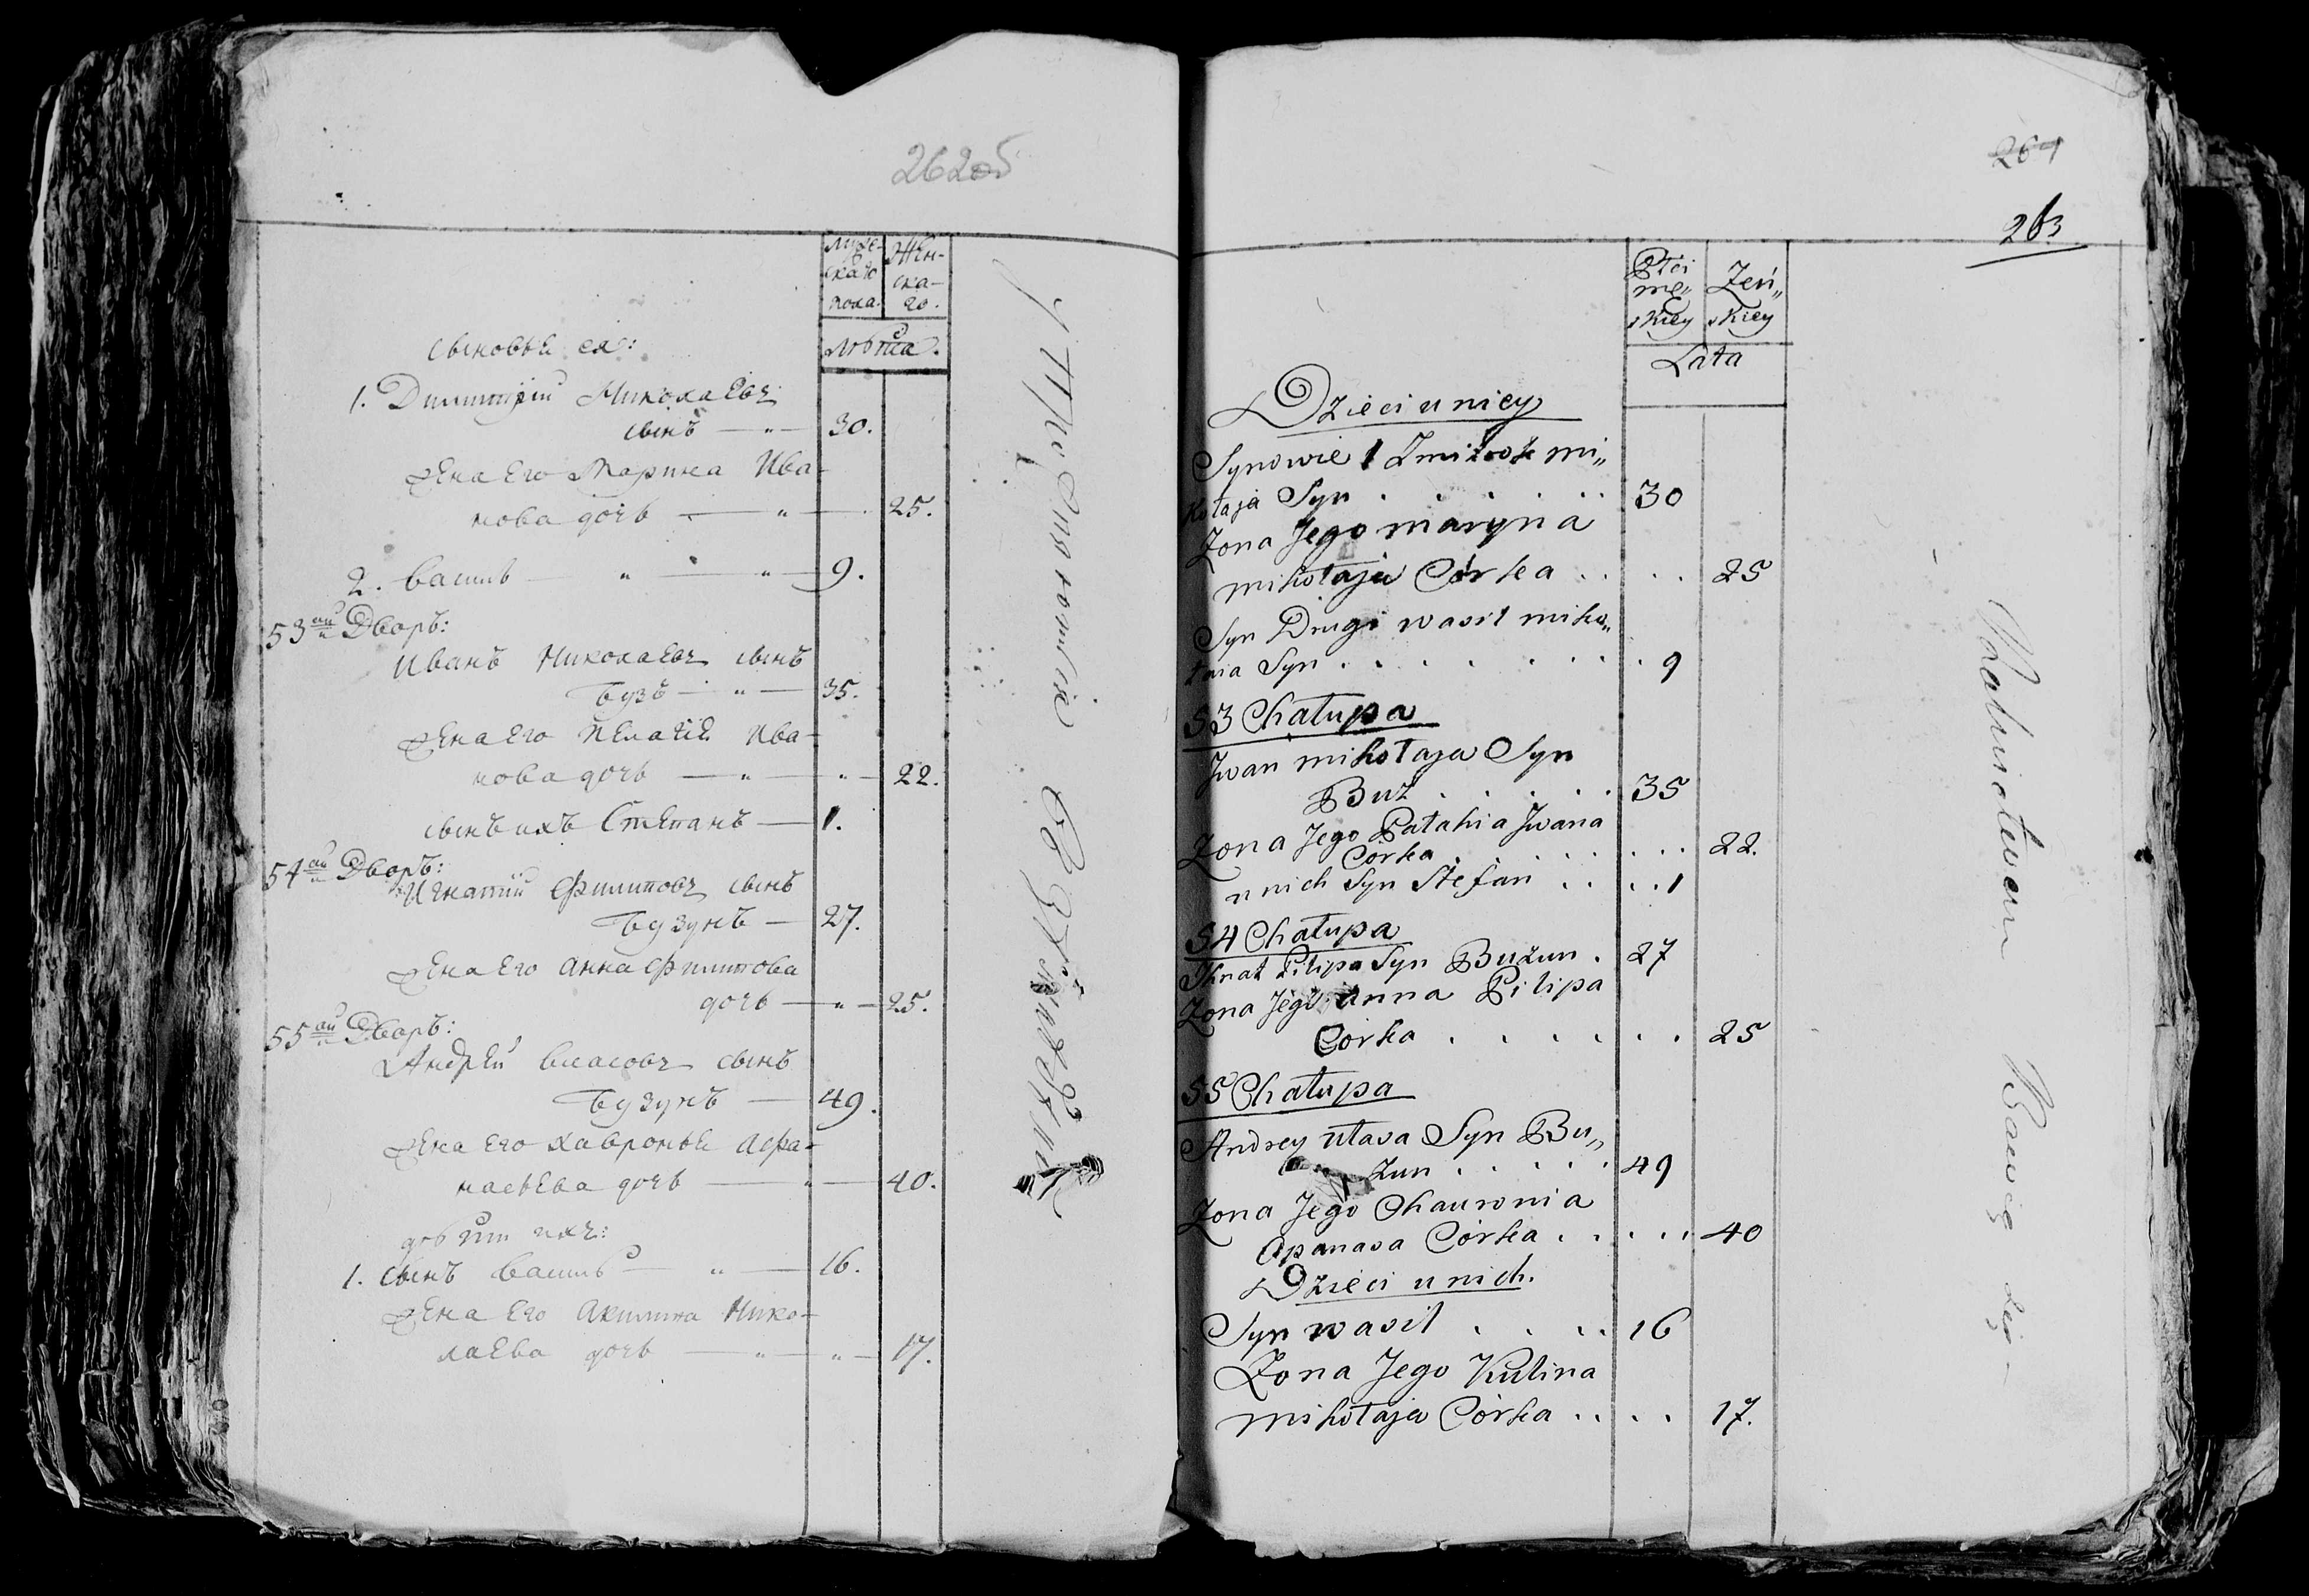 262об
Муже-
скаго
пола.
Жен-
ска-
го.
лѣта.
сыновьи ея:
1. Димитрій Николаевъ
сынъ — „ — 30.
жена его Марина Ива-
нова дочь — „ — 25.
2. Василь — „ — „ — 9.
53ій Дворъ:
Иванъ Николаевъ сынъ
Бузъ — „ — 35.
жена его Пелагія Ива-
нова дочь — „ — „ — 22.
сынъ ихъ Степанъ — 1.
54ій Дворъ:
Игнатій Филиповъ сынъ
Бузунъ — 27.
жена его Анна Филипова
дочь — „ — 25.
55ій Дворъ:
Андрей Власовъ сынъ
Бузунъ — 49.
жена его Хавронья Афа-
насьева дочь — 40.
дѣти ихъ:
1. сынъ Василь — „ — 16.
жена его Акилина Нико-
лаева дочь — „ — „ — 17.
264
263
Płci
mę„
skiey
Żeń„
skiey
Lata
Dzieci u niey
Synowie 1 Zmitrok mi„
kołaja Syn . . . . . . 30
Zona Jego maryna
mikołaja Córka . . . . 25
Syn Drugi wasil miko„
łaia Syn . . . . . . . . 9
53 Chałupa
Jwan mikołaja Syn
Buz . . . . . 35
Zona Jego Pałahia Jwana
Córka . . . . . . . . 22.
u nich Syn Stefan . . . . 1
54 Chałupa
Ihnat Pilipa Syn Buzun . 27
Zona Jego anna Pilipa
Córka . . . . . . . 25
55 Chałupa
Andrey ułasa Syn Bu„
zun . . . . . 49
Zona Jego Chauronia
Apanasa Córka . . . . . 40
Dzieci u nich.
Syn wasil . . . . 16
Zona Jego Kulina
mikołaja Córka . . . . 17.